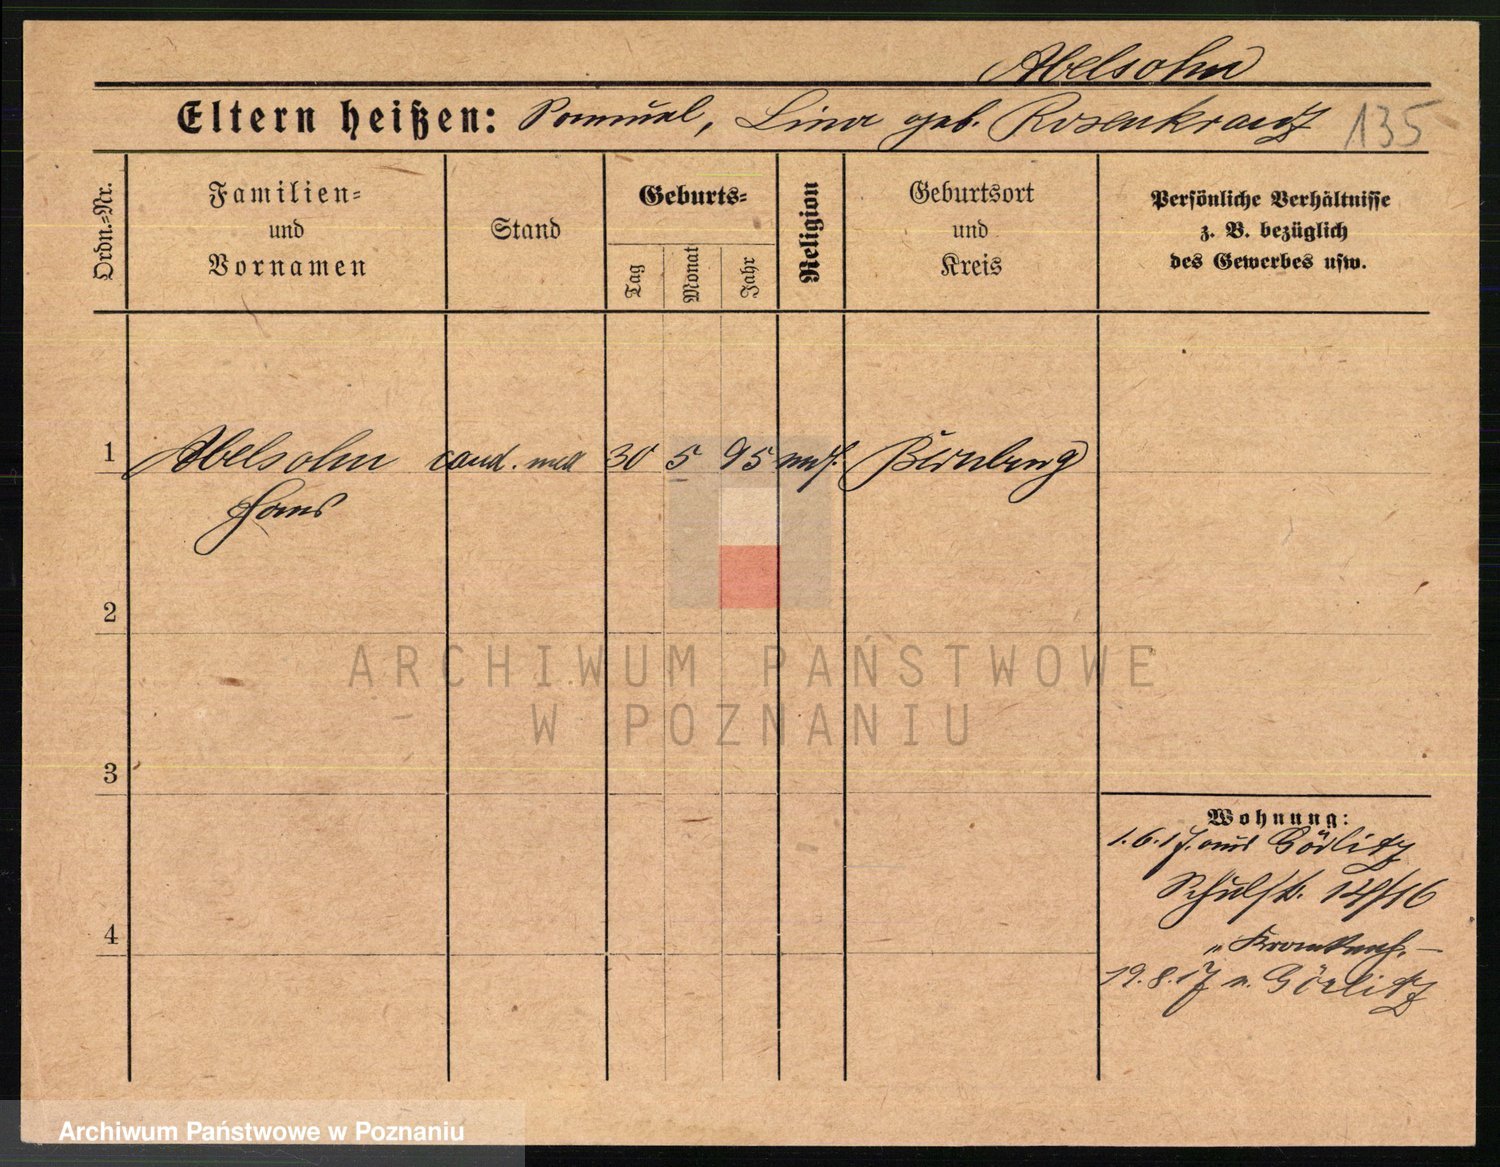 Abelsohn
Eltern heißen: Samuel, Lina geb. Rosenkranz 135
Ordn.-Nr.
Familien-
und
Vornamen
Stand
Geburts-
Tag
Monat
Jahr
Religion
Geburtsort
und
Kreis
Persönliche Verhältnisse
z. B. bezüglich
des Gewerbes usw.
1 Abelsohn cand. med 30 5 95 mos. Birnberg
Hans
2
ARCHIWUM PAŃSTWOWE
W POZNANIU
3
4
Wohnung:
1.6.17. aus Görlitz
Schulstr. 14/16
" Krankenh. —
19.8.17 n. Görlitz
Archiwum Państwowe w Poznaniu